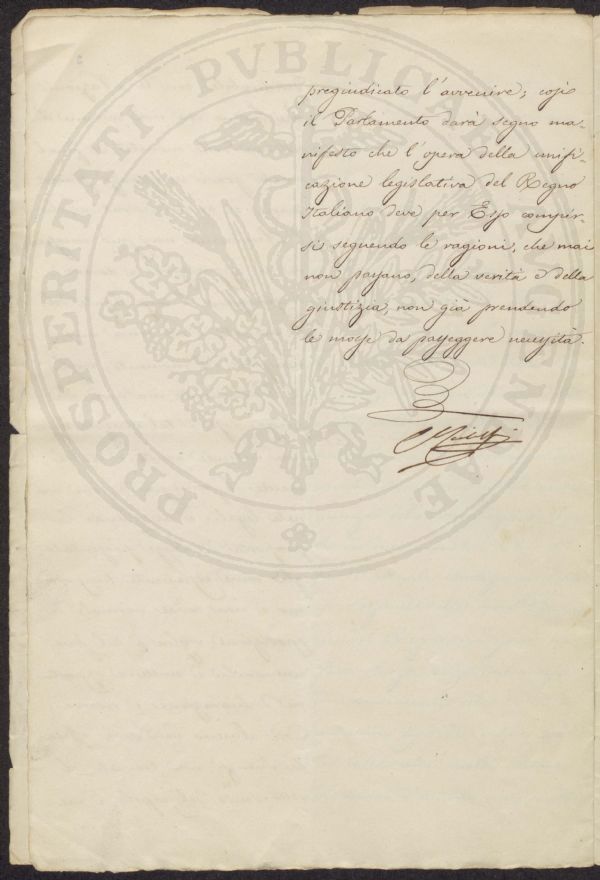 pregiudicato l'avvenire; così
il Parlamento darà segno ma-
nifesto che l'opera della unifi-
cazione legislativa del Regno
Italiano deve per Esso compir-
si seguendo le ragioni, che mai
non passano, della verità e della
giustizia, non già prendendo
le mosse da passeggere necessità.
PROSPERITATI PVBLICAE